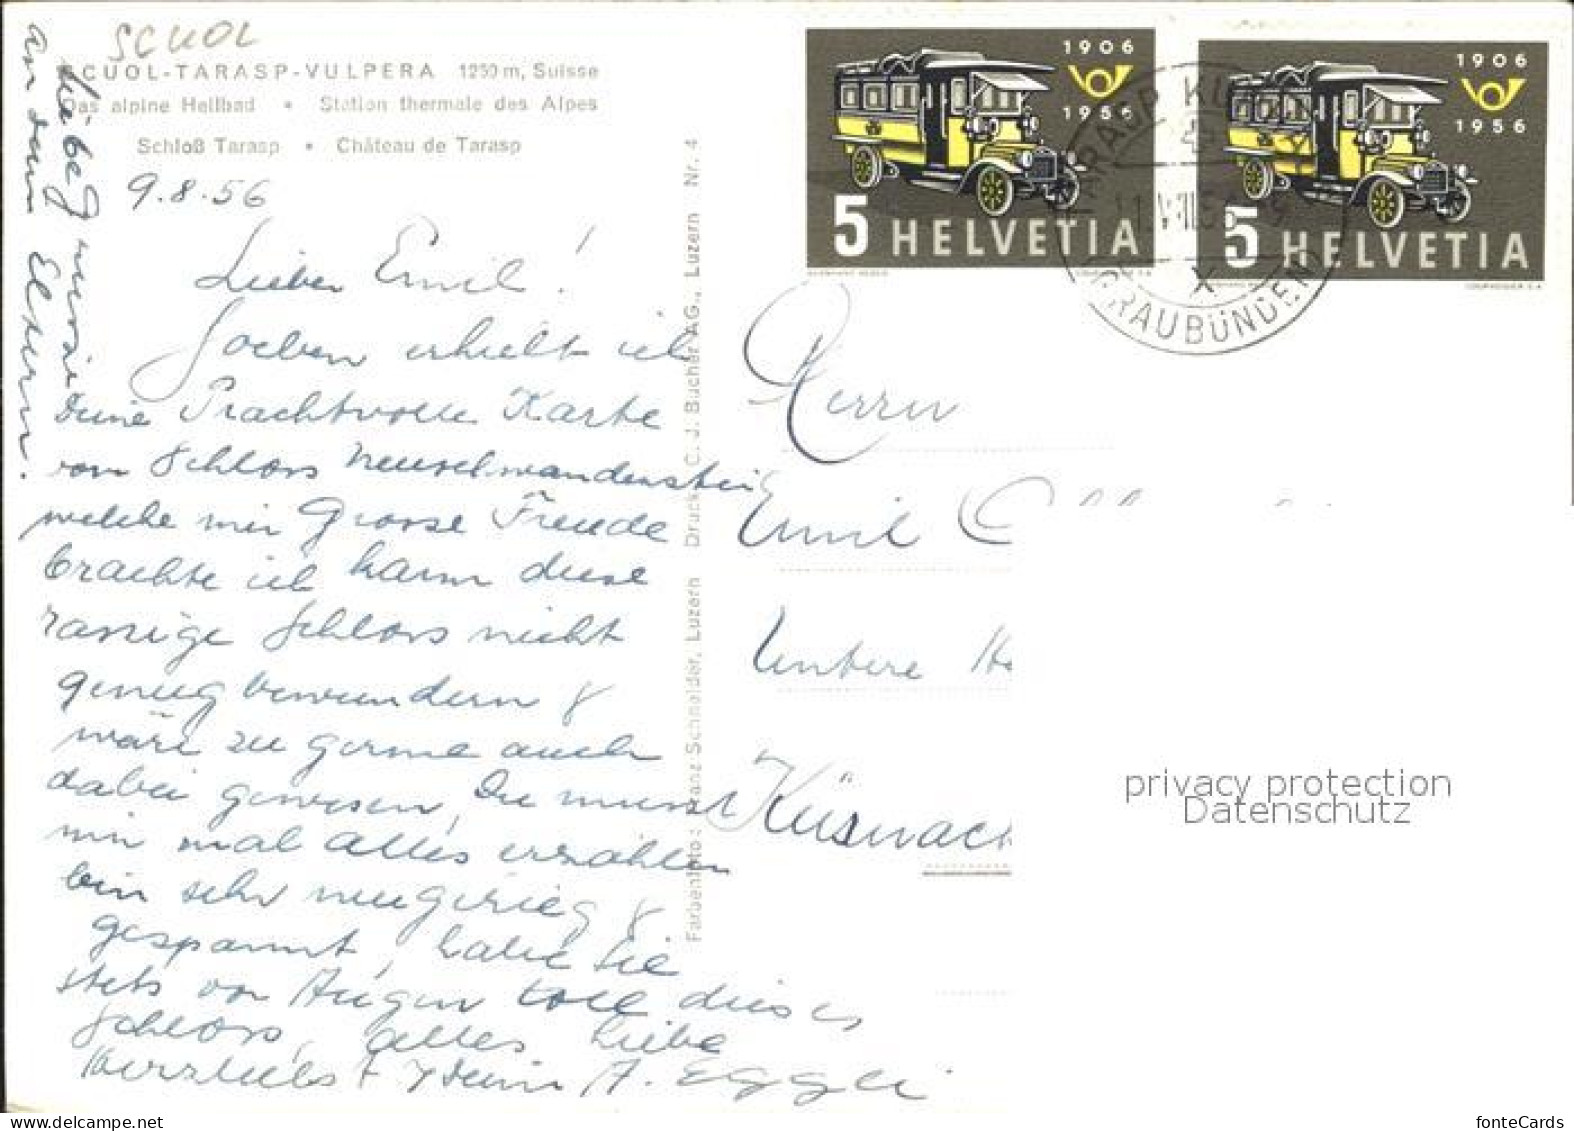 SCUOL
SCUOL-TARASP-VULPERA 1250 m, Suisse
Das alpine Heilbad • Station thermale des Alpes
Schloß Tarasp • Château de Tarasp
9.8.56
Lieber Emil!
Soeben erhielt ich
Deine Prachtvolle Karte
von Schloss Neuschwandenstein
welche mir Grosse Freude
brachte ich kann diese
rassige Schloss nicht
genug bewundern &
wäre zu gerne auch
dabei gewesen, Du musst
mir mal alles erzählen
bin sehr neugierieg &
gespannt, habe Sie
stets vor Augen tolle dieses
Schloss, alles Liebe
Herzliebs + Dein A. Eggli
Liebe Grüsse
an deine Eltern.
Farbenfoto: Franz Schneider, Luzern Druck: C. J. Bucher AG., Luzern Nr. 4
1906
1956
5 HELVETIA
COURVOISIER S.A.
1906
1956
5 HELVETIA
COURVOISIER S.A.
TARASP KU
GRAUBÜNDEN
Herrn
Emil
Untere
Küsnach
privacy protection
Datenschutz
fonteCards